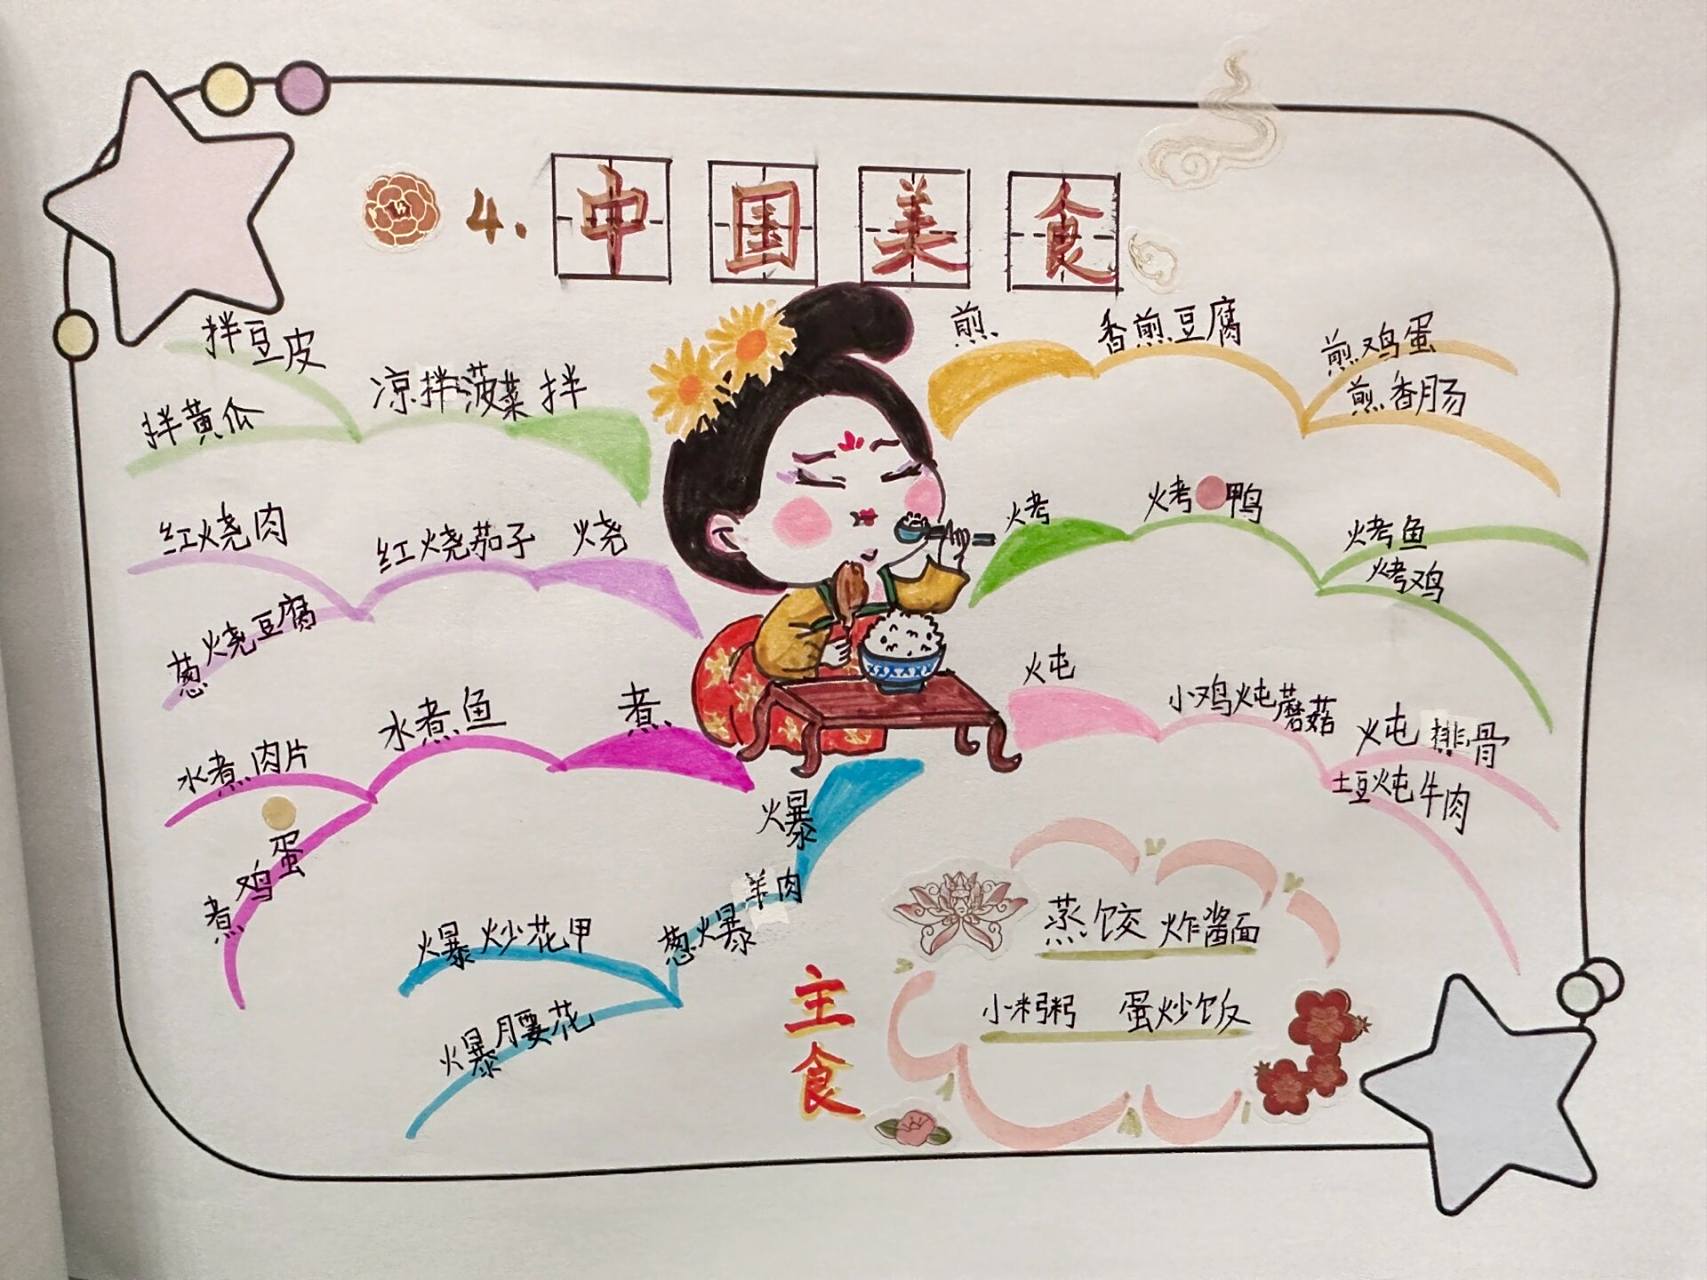 4. 中国美食
拌
凉拌菠菜
拌豆皮
拌黄瓜
烧
红烧茄子
红烧肉
葱烧豆腐
煮
水煮鱼
水煮肉片
煮鸡蛋
爆
葱爆羊肉
爆炒花甲
爆腰花
煎
香煎豆腐
煎鸡蛋
煎香肠
烤
烤鸭
烤鱼
烤鸡
炖
小鸡炖蘑菇
炖排骨
土豆炖牛肉
主食
蒸饺 炸酱面
小米粥 蛋炒饭